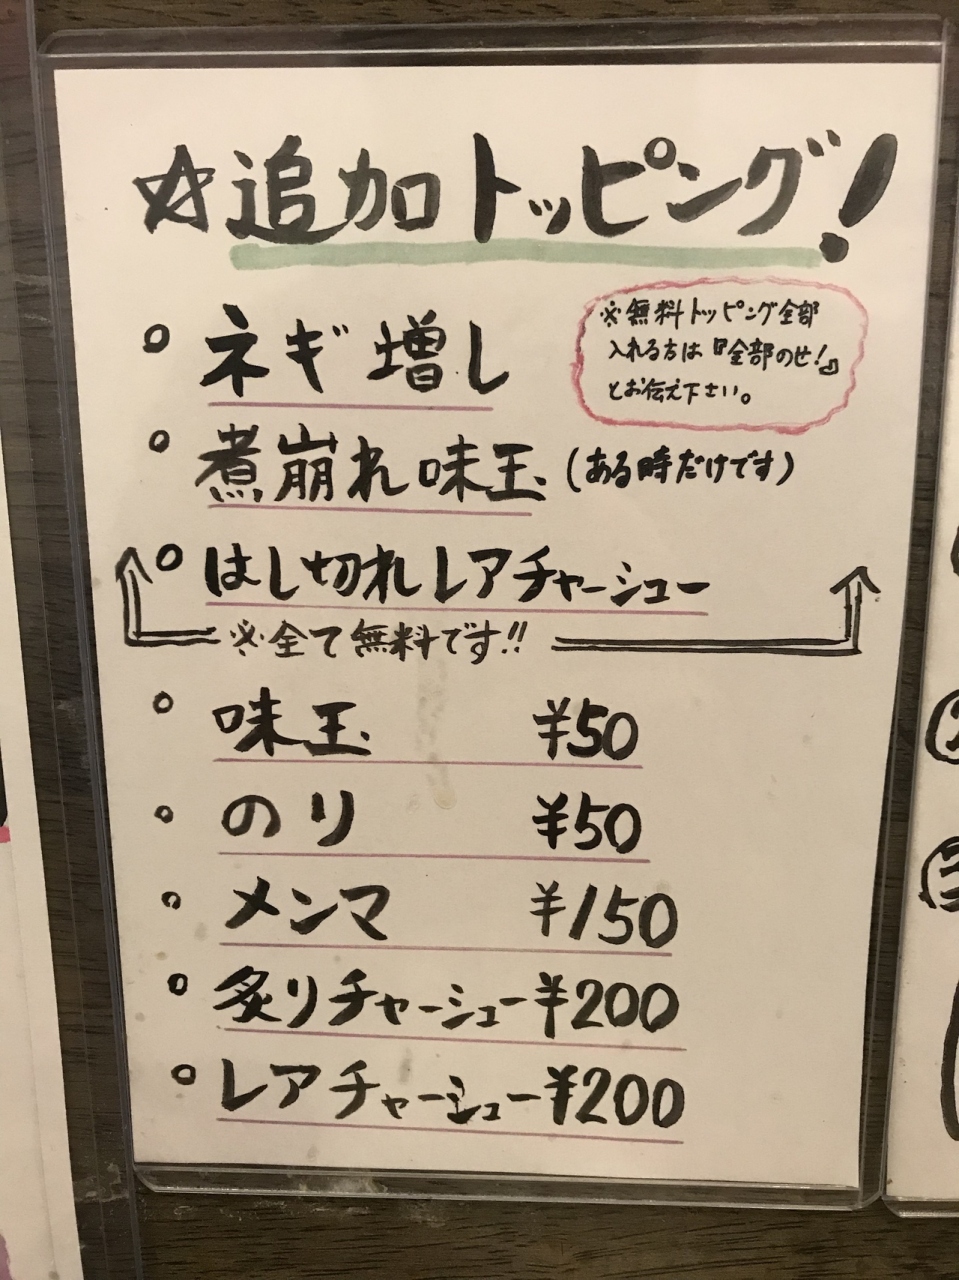 ☆追加トッピング!
○ ネギ増し
※無料トッピング全部
入れる方は『全部のせ!』
とお伝え下さい。
○ 煮崩れ味玉 (ある時だけです)
○ はし切れレアチャーシュー
※全て無料です!!
○ 味玉 ¥50
○ のり ¥50
○ メンマ ¥150
○ 炙りチャーシュー ¥200
○ レアチャーシュー ¥200